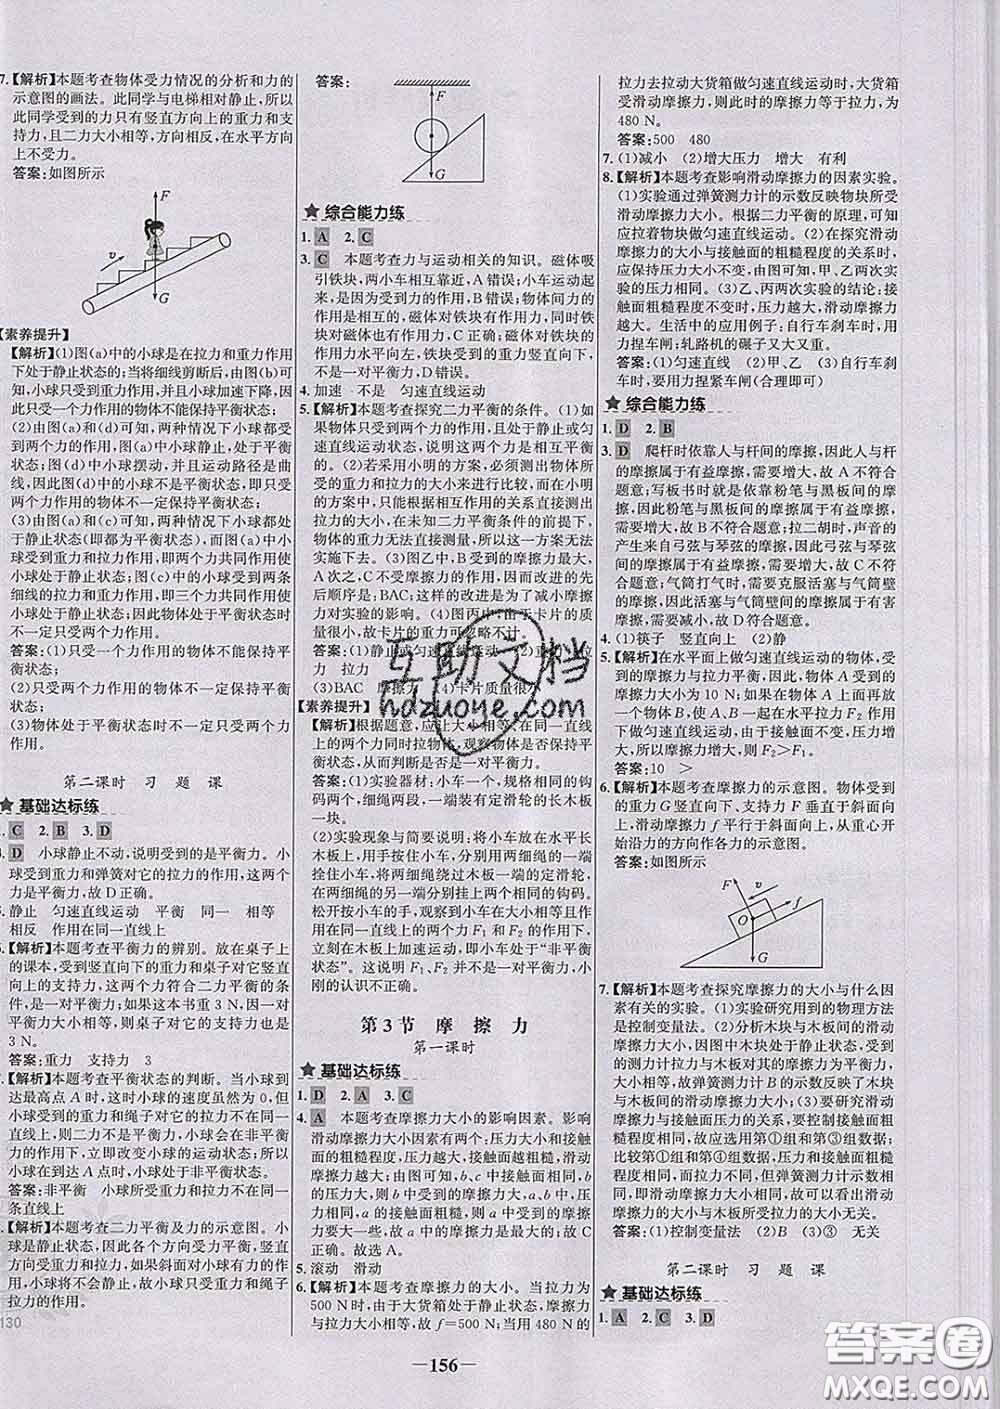 7.【解析】本题考查物体受力情况的分析和力的
示意图的画法。此同学与电梯相对静止，所以
此同学受到的力只有竖直方向上的重力和支
持力，且二力大小相等，方向相反，在水平方向
上不受力。
答案：如图所示
F
v
G
【素养提升】
【解析】(1)图(a)中的小球是在拉力和重力作用
下处于静止状态的；当将细线剪断后，由图(b)可
知，小球只受到重力作用，并且小球加速下降，因
此只受一个力作用的物体不能保持平衡状态；
(2)由图(a)和(d)可知，两种情况下小球都受
到两个力的作用，图(a)中小球静止，处于平衡
状态；图(d)中小球摆动，并且运动路径是曲
线，处于非平衡状态，即只受两个力作用
的物体不一定保持平衡状态；
(3)由图(a)和(c)可知，两种情况下小球都处
于静止状态(即都为平衡状态)，而图(a)中小球
受到重力和拉力作用，即两个力共同作用使
小球处于静止状态；图(c)中小球受到两条
细线的拉力和重力作用，即三个力共同作用使
小球处于静止状态；因此物体处于平衡状态时
不一定只受两个力作用。
答案：(1)只受一个力作用的物体不能保持平
衡状态；
(2)只受两个力作用的物体不一定保持平衡状
态；
(3)物体处于平衡状态时不一定只受两个力
作用。
第二课时 习题课
★基础达标练
1. C 2. B 3. D
4. D 小球静止不动，说明受到的是平衡力。小
球受到重力和弹簧对它的拉力的作用，这两个
力是平衡力，故D正确。
5. 静止 匀速直线运动 平衡 同一 相等
相反 作用在同一直线上
6.【解析】本题考查平衡力的辨别。放在桌子上
的课本，受到竖直向下的重力和桌子对它竖直
向上的支持力，这两个力符合二力平衡的条
件，是一对平衡力；如果这本书重3 N，因一对
平衡力大小相等，则桌子对它的支持力也是
3 N。
答案：重力 支持力 3
7.【解析】本题考查平衡状态的判断。当小球到
达最高点A时，这时小球的速度虽然为0，但
小球受到的重力和绳子对它的拉力不在同一
直线上，则二力不是平衡力，小球会在非平衡
力的作用下，立即改变小球的运动状态，所以
小球在到达A点时，小球处于非平衡状态。
答案：非平衡 小球所受重力和拉力不在同一
条直线上
8.【解析】本题考查二力平衡及力的示意图。小
球是静止状态，因此各个方向受力平衡，竖直
方向受重力和拉力，且重力和拉力为一对平衡
力，如果斜面对小球有力的作用，
小球将不会静止，故小球只受重力和绳子
拉力的作用。
130
答案：
F
G
★综合能力练
1. A 2. C
3. C 本题考查力与运动相关的知识。磁体吸
引铁块时，两小车相互靠近，A错误；小车运动起
来，是因为受到力的作用，B错误；物体间力的
作用是相互的，磁体对铁块有作用力，同时铁块
对磁体也有作用力，C正确；磁体对铁块的
作用力水平向左，铁块受到的重力竖直向下，
不是一对平衡力，D错误。
4. 加速 不是 匀速直线运动
5.【解析】本题考查探究二力平衡的条件。(1)如
果物体只受到两个力的作用，且处于静止或匀
速直线运动状态，说明这两个力是相互平衡
的。(2)若采用小明的方案，必须测出物体受到
的重力和拉力的大小来进行比较，而在小明
的方案中，根据相互作用的关系直接测出
拉力的大小，在未知二力平衡条件的前提下，
物体的重力无法直接测量，所以这一方案无法
实施下去。(3)图乙中，B受到的摩擦力最大，
A次之，C不受摩擦力的作用，因而改进的先
后顺序是：BAC；这样的改进是为了减小摩擦
力对实验的影响。(4)图丙中，由于卡片的重力小，
所以，故卡片的重力可忽略不计。
答案：(1)静止或匀速直线运动 (2)重力 拉
力 拉力
(3)BAC 摩擦力 (4)卡片质量很小
【素养提升】
【解析】根据题意，应让大小相等、在同一直线上
的两个力同时拉物体，观察物体是否保持平衡
状态，从而判断是否是平衡力。
答案：(1)实验器材：小车一个，规格相同的钩
码两个，细绳两段，一端装有定滑轮的长木板
一块。
(2)实验现象与简要说明：将小车放在水平长
木板上，用手按住小车，分别用两细绳的一端
拴在小车上，两细绳跨过木板一端的定滑轮，
在两细绳的另一端分别挂上两个相同的钩码。
松开按小车的手，观察到小车在大小相等、
方向相同，作用在同一直线上的两个力作用下，
立刻在木板上加速运动，即小车处于“非平衡
状态”。由此可知，这两个力不是一对平衡力，小
刚的认识不正确。
第3节 摩擦力
第一课时
★基础达标练
1. D 2. A 3. C
4. A 本题考查摩擦力大小的影响因素。影响
滑动摩擦力大小因素有两个：压力大小和接触
面的粗糙程度，压力越大、接触面越粗糙，滑动
摩擦力越大；由图可知，a、c中接触面相同，压力
也相同，则b中受到的摩擦力大小相等；a、b中压
力相同，b的接触面粗糙，则b中受到的摩擦
力要大一些，故a中的摩擦力是最大的；故C
正确。故选A。
5. 滚动 滑动
6.【解析】本题考查摩擦力的大小。当拉力为
500 N时，由于大货箱处于静止状态，所以摩擦
力与拉力平衡，故f=500 N；当用480 N的
拉力去拉动大货箱做匀速直线运动时，大货箱
受滑动摩擦力，则此时的摩擦力等于拉力，为
480 N。
答案：500 480
7. (1)减小 (2)增大压力 增大 有利
8.【解析】本题考查影响滑动摩擦力的因素实验。
(1)实验通过弹簧测力计的示数反映物块所受
滑动摩擦力大小。根据二力平衡的原理，可知
应拉着物块做匀速直线运动。(2)在探究滑动
摩擦力的大小与接触面的粗糙程度的关系时，
应保持压力大小不变，由图可知，甲、乙两次实
验符合题意。(3)乙、丙两次实验的结论是：接
触面粗糙程度不变时，压力越大，滑动摩擦力越
大。生活中的应用例子：自行车刹车时，用力
捏车闸；轧路机的碾子又大又重。
答案：(1)匀速直线 (2)甲、乙 (3)自行车刹
车时，要用力捏紧车闸(合理即可)
★综合能力练
1. D 2. B
3. D 爬杆时依靠人与杆间的摩擦，因此人与杆
的摩擦属于有益摩擦，需要增大，故A不符合
题意；写板书时就是依靠粉笔与黑板间的摩
擦，因此粉笔与黑板间的摩擦属于有益摩擦，
需要增大，故B不符合题意；拉二胡时，声音的
产生来自弓弦与琴弦的摩擦，因此弓弦与琴弦
间的摩擦属于有益摩擦，需要增大，故C不符
合题意；气筒打气时，需要克服活塞与气筒壁
的摩擦，因此活塞与气筒壁间的摩擦属于有害
摩擦，需要减小，故D符合题意。
4. (1)筷子 竖直向上 (2)静
5.【解析】在水平面上做匀速直线运动的物体，受
到的拉力与摩擦力平衡，因此物体A受到的摩
擦力大小为10 N；如果在物体A上面再放
一个物体B，使A、B一起在水平拉力F₂作用
下做匀速直线运动，由于压力增大，所以摩擦
力增大，则拉力增大，则F₂>F₁。
答案：10 >
6.【解析】本题考查摩擦力的示意图。物体受到
的重力G竖直向下、支持力F垂直于斜面向
上，滑动摩擦力f平行于斜面向上，从重心开
始沿力的方向作各力的示意图。
答案：如图所示
F
v
f
O
G
7.【解析】本题考查探究摩擦力的大小与什么因
素有关的实验。(1)实验研究用到的物理方法
是控制变量法。(2)分析木块与木板间的滑动
摩擦力大小，木块处于平衡状态，所以弹簧
测力计拉力与木板对其的摩擦力为平衡力，大
小相等，故弹簧测力计的示数反映了木块与
木板间的滑动摩擦力大小；(3)要研究滑动
摩擦力大小与压力的关系，要控制接触面粗糙
程度相同，故应选用第①组和第③组数据；
比较第①组和第④组数据，接触面
粗糙程度相同，因弹簧测力计示数相同，
所以木块与木板所受滑动摩擦力相同，即滑动
摩擦力的大小与接触面的大小无关。
答案：(1)控制变量法 (2)B (3)③ 无关
第二课时 习题课
★基础达标练
1. A 2. C 3. D
—156—
互助文档
hdzuoye.com
答案圈
MXQE.COM